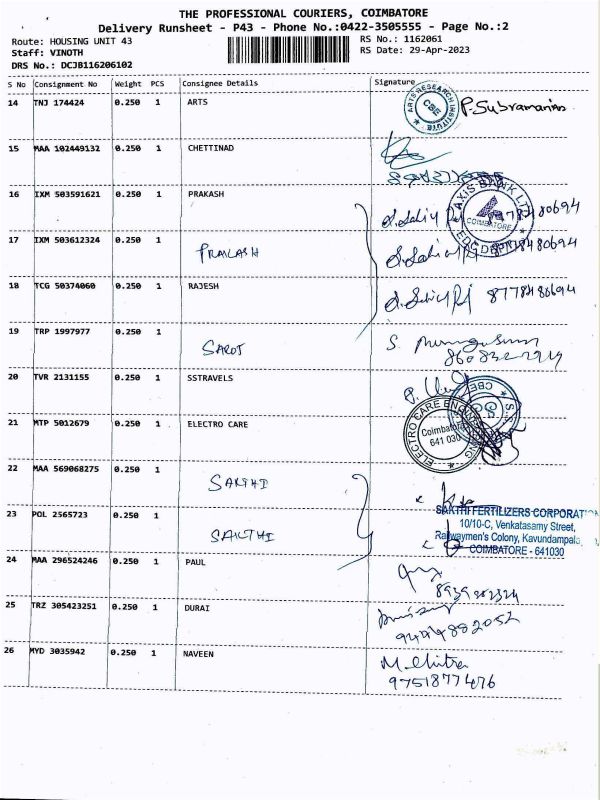 THE PROFESSIONAL COURIERS, COIMBATORE
Delivery Runsheet - P43 - Phone No.:0422-3505555 - Page No.:2
Route: HOUSING UNIT 43 RS No.: 1162061
Staff: VINOTH RS Date: 29-Apr-2023
DRS No.: DCJB116206102
S No Consignment No Weight PCS Consignee Details Signature
14 TNJ 174424 0.250 1 ARTS P.Subramanian
ARTS RESEARCH INSTITUTE CBE
15 MAA 102449132 0.250 1 CHETTINAD
16 IXM 503591621 0.250 1 PRAKASH
AXIS BANK LTD COIMBATORE
17 IXM 503612324 0.250 1 PRAKASH
18 TCG 50374060 0.250 1 RAJESH 8778480694
19 TRP 1997977 0.250 1 SAROJ S.
20 TVR 2131155 0.250 1 SSTRAVELS
CBE
21 MTP 5012679 0.250 1 ELECTRO CARE
ELECTRO CARE Coimbatore 641 030
22 MAA 569068275 0.250 1 SAKTHI
23 POL 2565723 0.250 1 SAKTHI
SAKTHI FERTILIZERS CORPORAT
10/10-C, Venkatasamy Street,
Railwaymen's Colony, Kavundampala
COIMBATORE - 641030
24 MAA 296524246 0.250 1 PAUL
25 TRZ 305423251 0.250 1 DURAI
9444882052
26 MYD 3035942 0.250 1 NAVEEN M. Chitra
9751877476